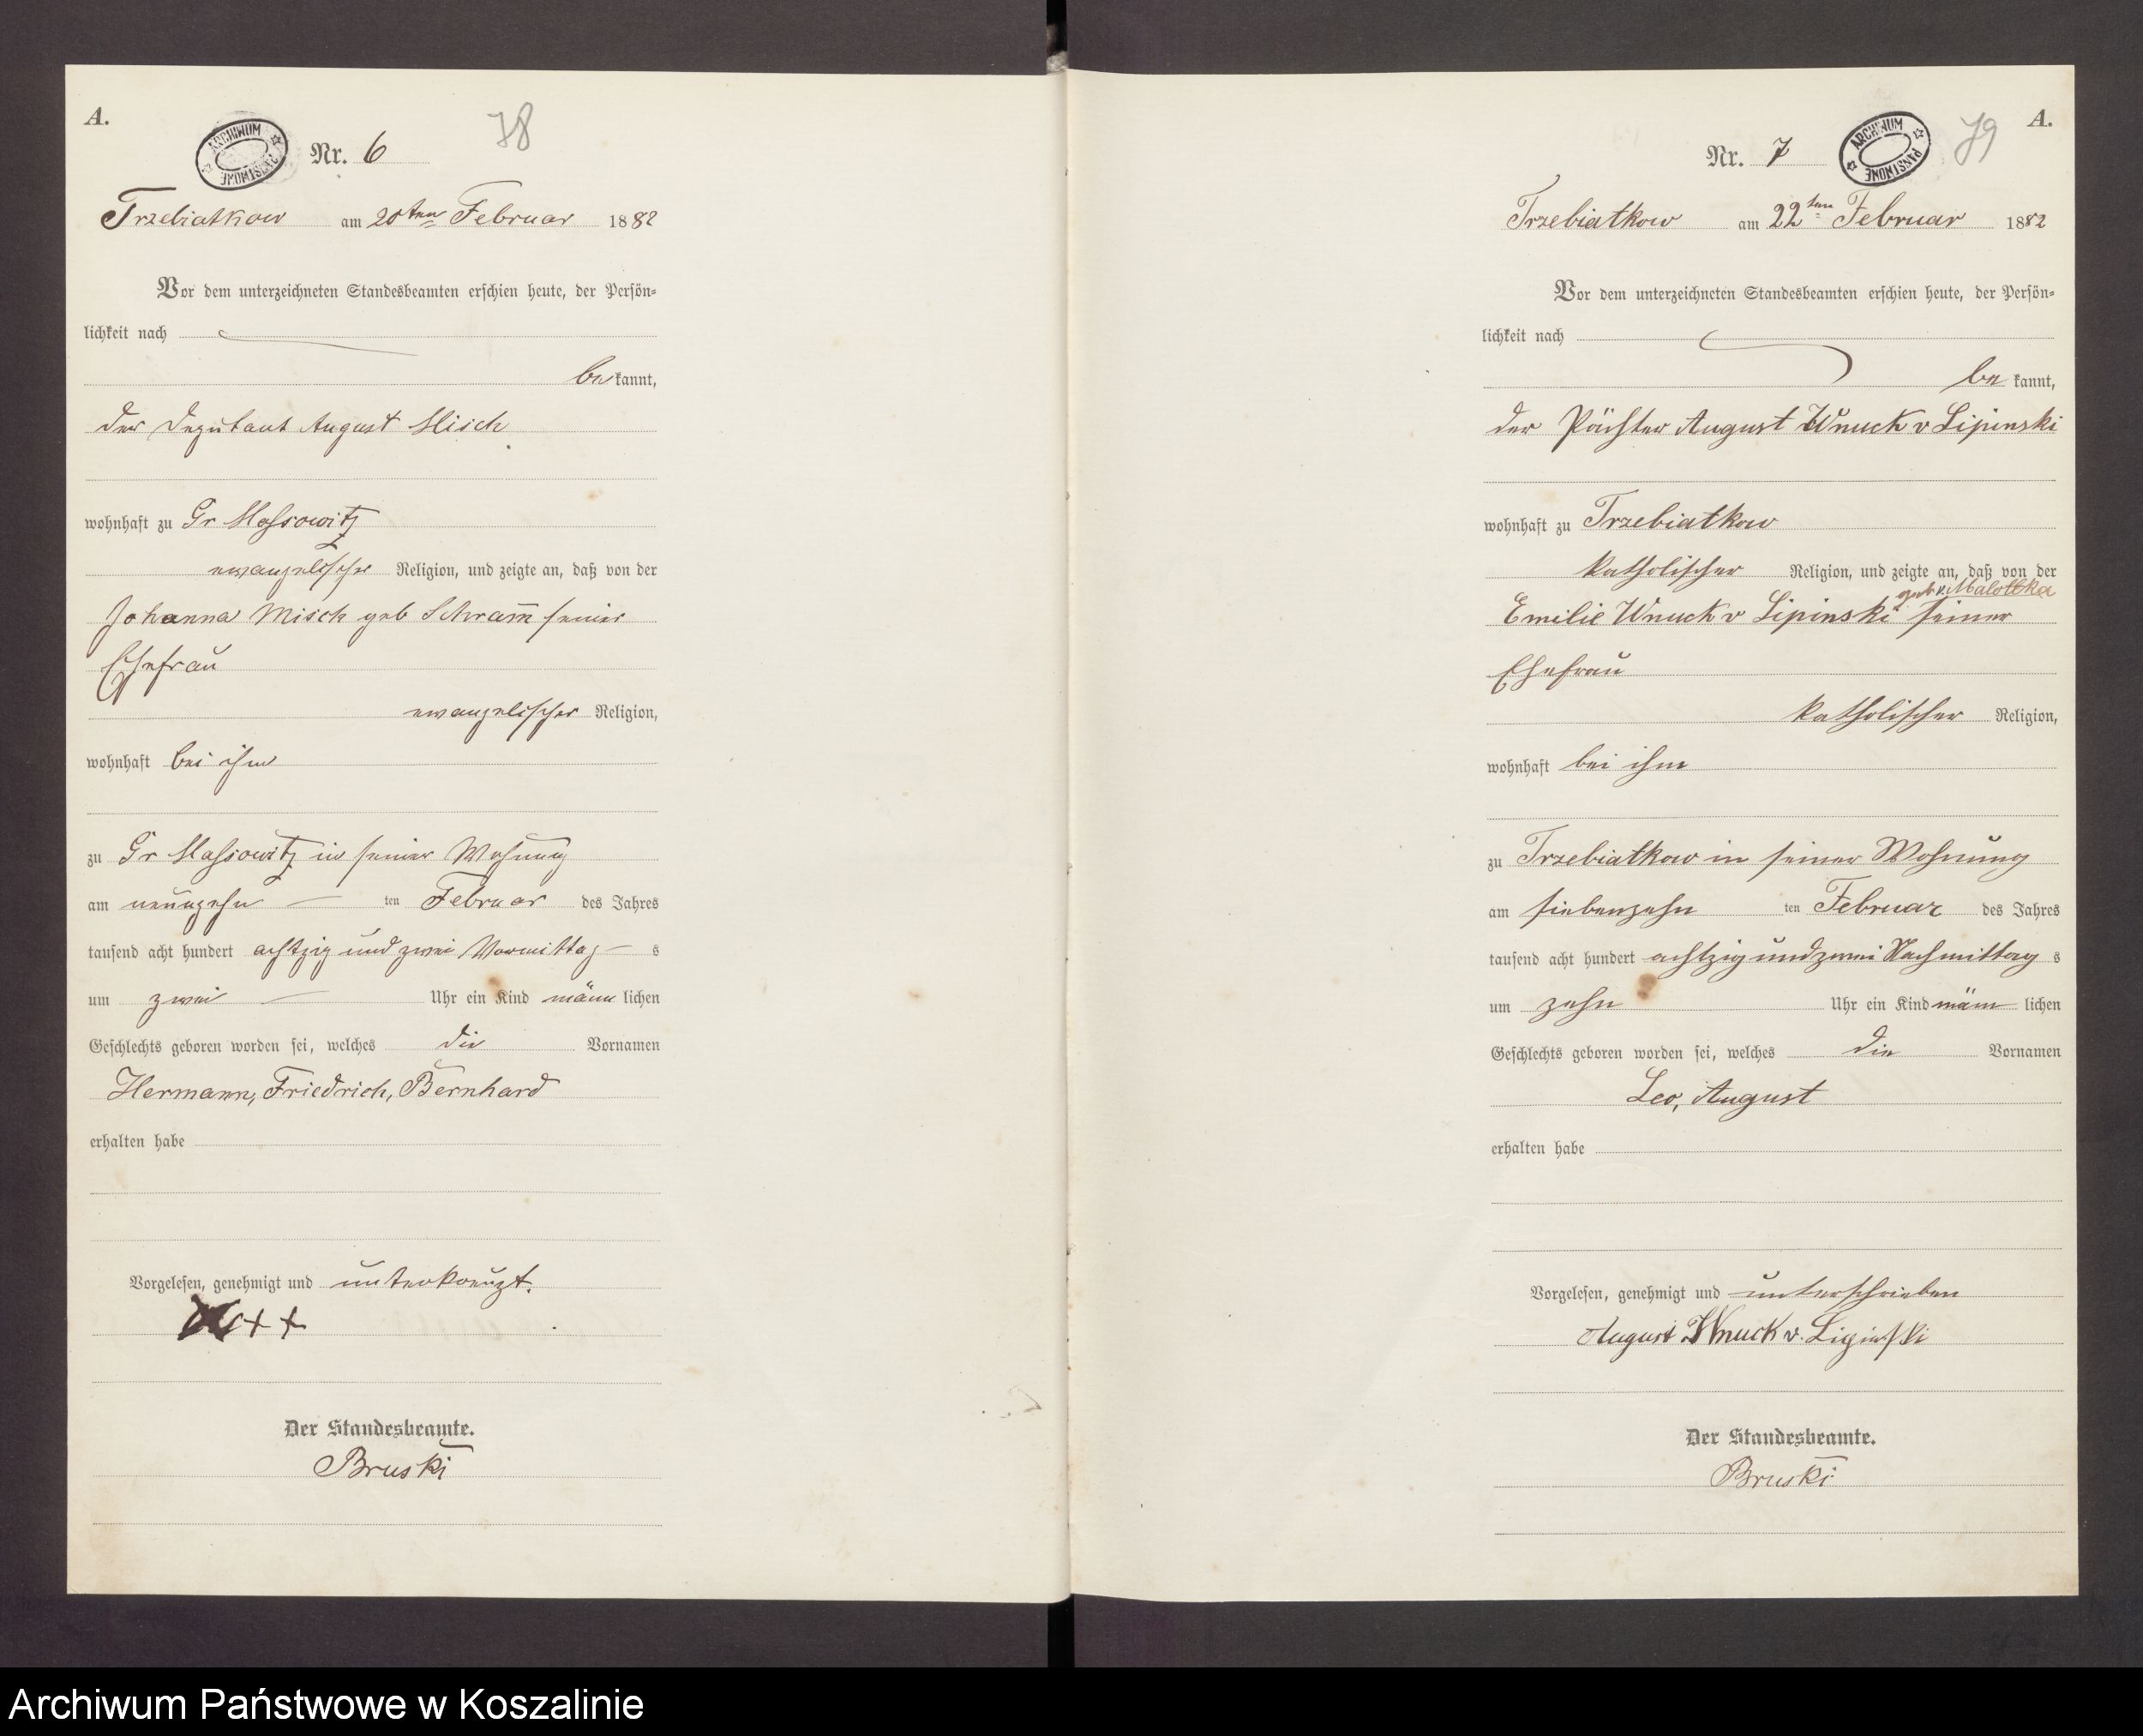 A.
ARCHIWUM PAŃSTWOWE
Nr. 6
78
Trzebiatkow am 20ten Februar 1882
Vor dem unterzeichneten Standesbeamten erschien heute, der Persön-
lichkeit nach
be kannt,
der Deputant August Misch
wohnhaft zu Gr Massowitz
ewangelischer Religion, und zeigte an, daß von der
Johanna Misch geb Schram̄ seiner
Ehefrau
ewangelischer Religion,
wohnhaft bei ihm
zu Gr Massowitz in seiner Wohnung
am neunzehn ten Februar des Jahres
tausend acht hundert achtzig und zwei Vormittag s
um zwei Uhr ein Kind männ lichen
Geschlechts geboren worden sei, welches die Vornamen
Hermann, Friedrich, Bernhard
erhalten habe
Vorgelesen, genehmigt und unterkreuzt.
+ +
Der Standesbeamte.
Bruski
A.
Nr. 7
ARCHIWUM PAŃSTWOWE
79
Trzebiatkow am 22ten Februar 1882
Vor dem unterzeichneten Standesbeamten erschien heute, der Persön-
lichkeit nach
be kannt,
der Pächter August Wnuck v Lipinski
wohnhaft zu Trzebiatkow
katholischer Religion, und zeigte an, daß von der
geb v. Malottka
Emilie Wnuck v Lipinski seiner
Ehefrau
katholischer Religion,
wohnhaft bei ihm
zu Trzebiatkow in seiner Wohnung
am siebenzehn ten Februar des Jahres
tausend acht hundert achtzig und zwei Nachmittag s
um zehn Uhr ein Kind män lichen
Geschlechts geboren worden sei, welches die Vornamen
Leo, August
erhalten habe
Vorgelesen, genehmigt und unterschrieben
August Wnuck v. Lipinski
Der Standesbeamte.
Bruski
Archiwum Państwowe w Koszalinie